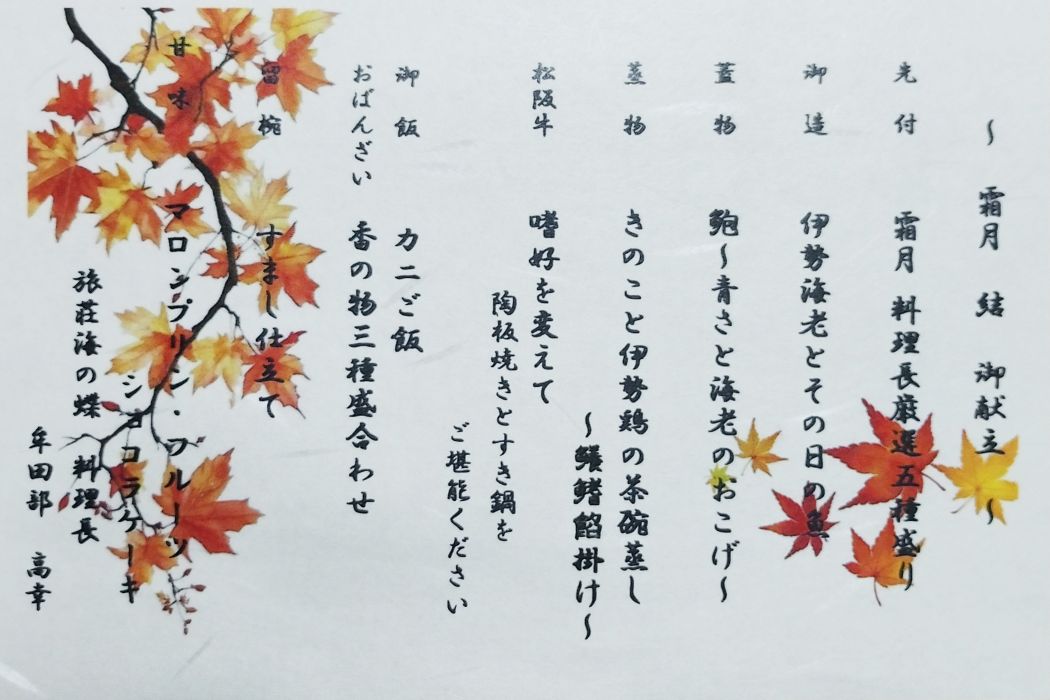 ～ 霜月 結 御献立 ～
先付 霜月 料理長厳選五種盛り
御造 伊勢海老とその日の魚
蓋物 鮑～青さと海老のおこげ～
蒸物 きのこと伊勢鶏の茶碗蒸し
～鱶鰭餡掛け～
松阪牛 嗜好を変えて
陶板焼きとすき鍋を
ご堪能ください
御飯 カニご飯
おばんざい 香の物三種盛合わせ
留椀 すまし仕立て
甘味 マロンプリン・フルーツ
ショコラケーキ
旅荘海の蝶 料理長
牟田部 高幸